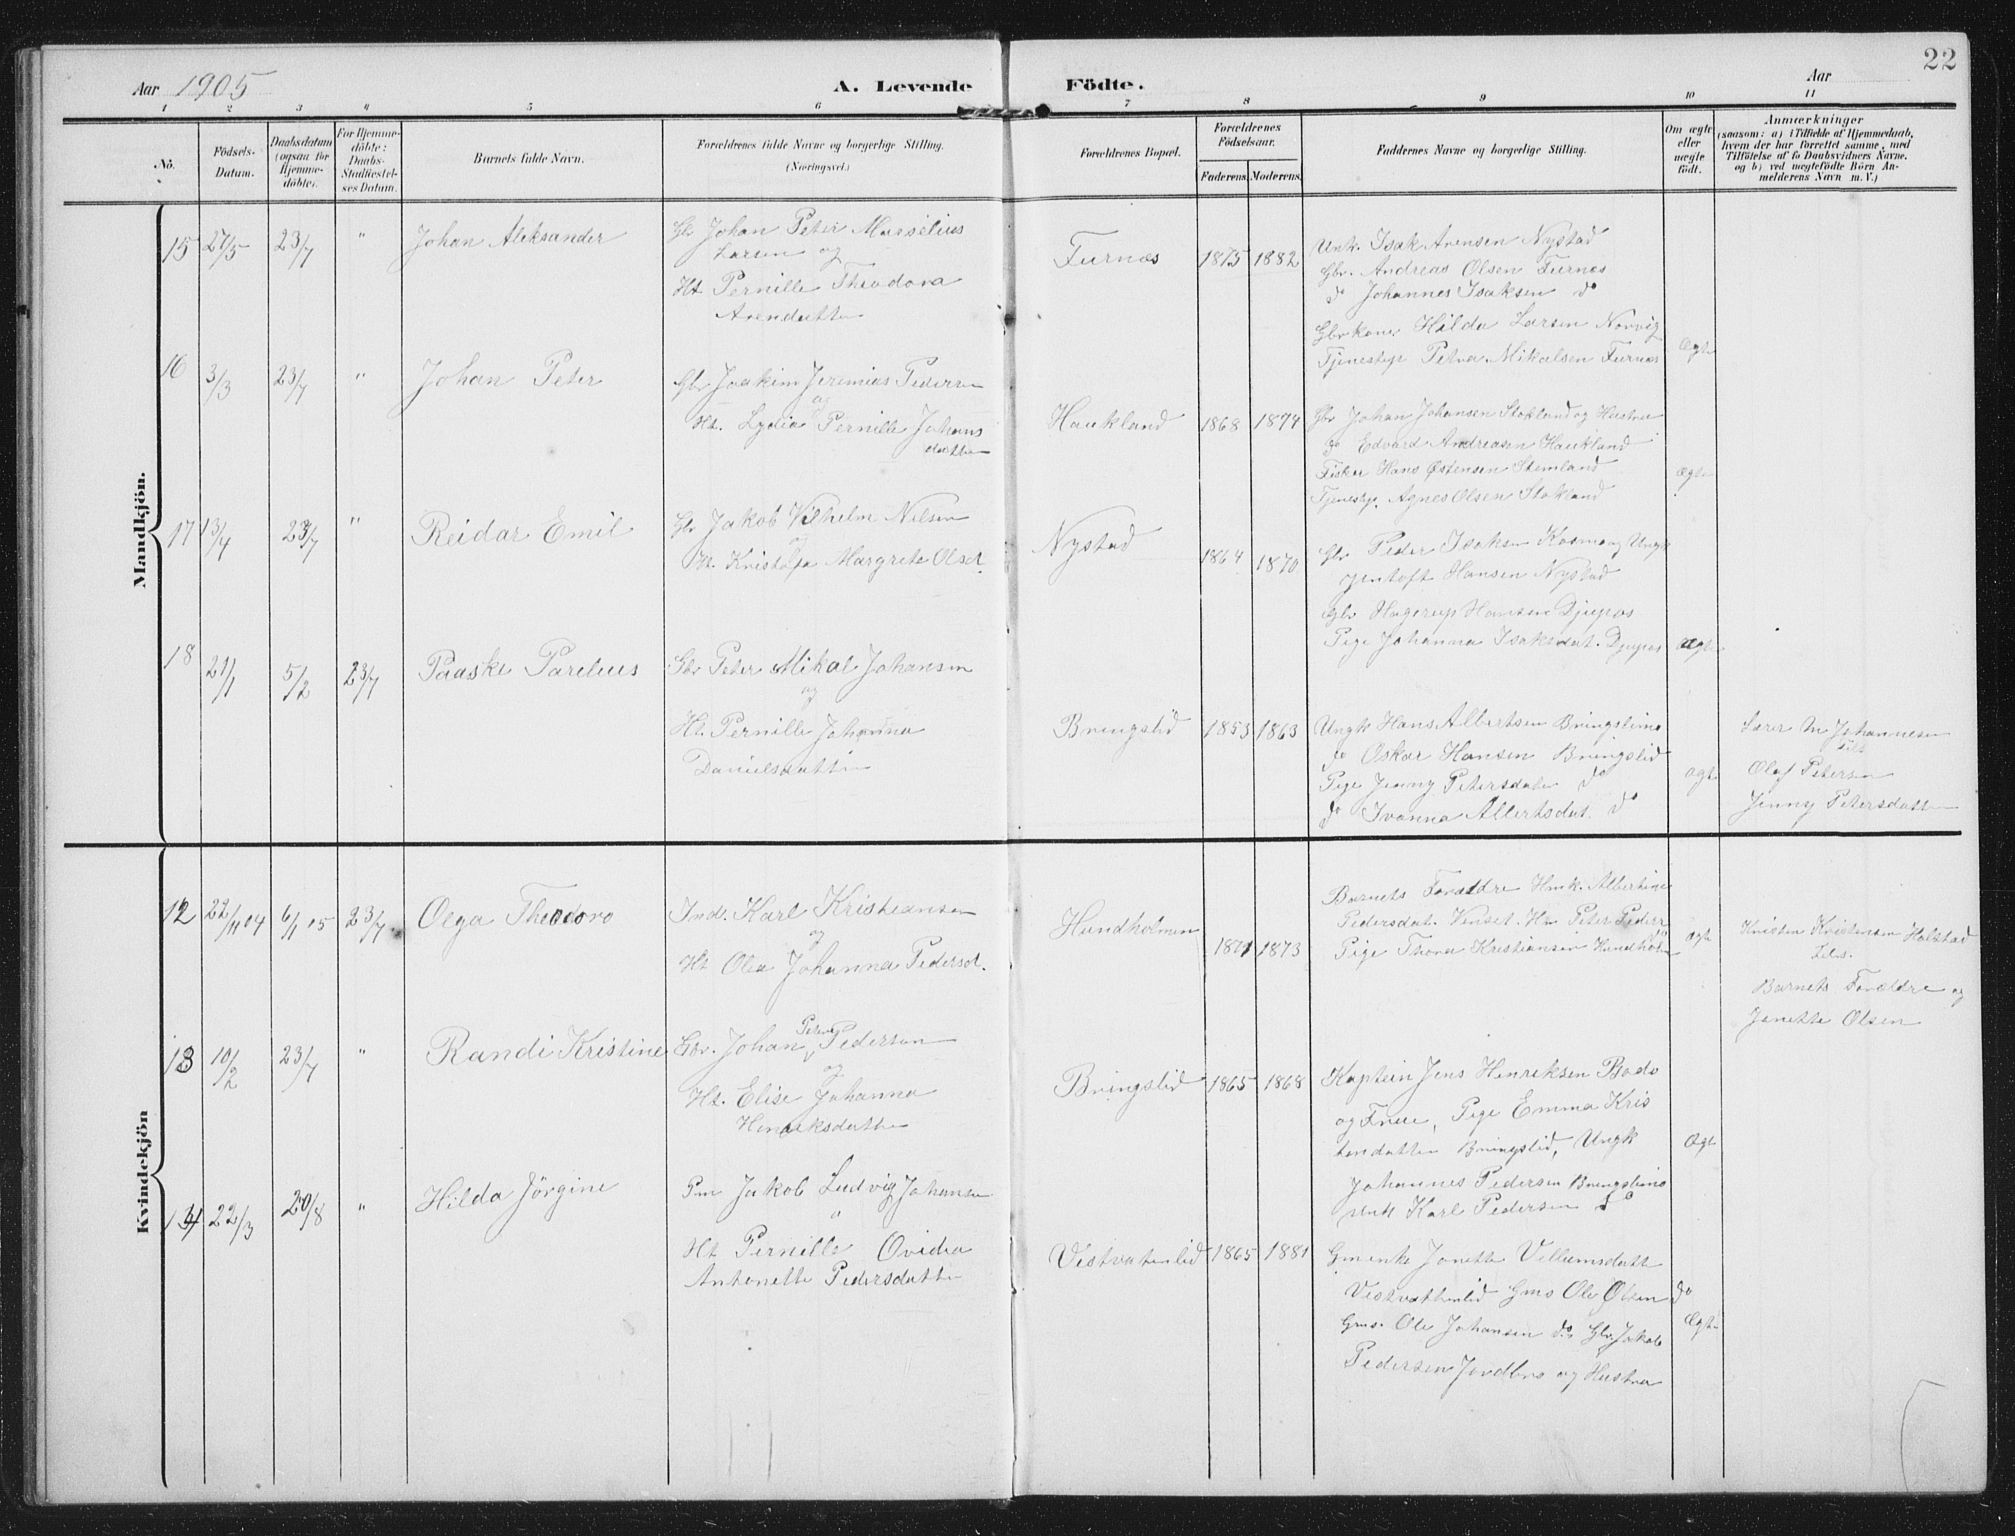 22
Aar 1905
A. Levende Födte.
Aar
1 2 3 4 5 6 7 8 9 10 11
No.
Födsels-Datum.
Daabsdatum (ogsaa for Hjemme-döbte).
For Hjemme-döbte: Daabs-Stadfæstel-ses Datum.
Barnets fulde Navn.
Forældrenes fulde Navne og borgerlige Stilling.
(Næringsvei.)
Forældrenes Bopæl.
Forældrenes Födselsaar.
Faderens. Moderens.
Faddernes Navne og borgerlige Stilling.
Om ægte eller uægte födt.
Anmærkninger
(saasom: a) i Tilfælde af Hjemmedaab,
hvem der har forrettet samme, med
Tilföielse af to Daabsvidners Navne,
og b) ved uægtefödte Börn An-
melderens Navn m. V.)
Mandkjön.
15 27/5 23/7 " Johan Aleksander
Gbr Johan Peter Marselius
Larsen og
Ht Pernille Theodora
Arendatter
Furnæs 1875 1882
Untr. Isak Arensen Nystad
Gbr. Andreas Olsen Furnæs
do Johannes Isaksen do
Gbrkone Hilda Larsen Norvig
Tjenestpi Petra Mikalsen Furnæs
Ægte
16 3/3 23/7 " Johan Peter
Gbr Joakim Jeremias Pedersen
og
Ht. Lydia Pernille Johans
datter
Haukland 1868 1874
Gbr Johan Johansen Stokland og Hustru
do Edvard Andreasen Haukland
Fisker Hans Østensen Stemland
Tjenestp. Agnes Olsen Stokland
Ægte
17 13/4 23/7 " Reidar Emil
Gbr Jakob Vilhelm Nilsen
og
Ht. Kristofa Margrete Olsd.
Nystad 1864 1870
Gbr Peder Isaksen Kosmo og Ungk
Jentoft Hansen Nystad
Gbr Hagerup Hansen Djupos
Pige Johanna Isaksdat. Djupos
ægte
18 21/1 5/2 23/7 Paaske Parelius
Gbr Peter Mikal Johansen
og
Ht. Pernille Johanna
Danielsdatter
Bringslid 1853 1863
Ungk Hans Albertsen Bringslimo
do Oskar Hansen Bringslid
Pige Jenny Petersdate do
do Ivanna Albertsdat. do
ægte
Lærer M Johannesen
Olaf Petersen
Jenny Petersdatter
Kvindekjön
12 22/11 04 6/1 05 23/7 Olga Theodora
Ind. Karl Kristiansen
og
Ht Olea Johanna Pedersd.
Hundholmen 1871 1873
Barnets Forældre Hmk. Albertine
Pedersdat. Venset. Hm Peter Peders
Pige Thora Kristiansen Hundholm
ægte
Kristen Kristensen Halstad
Barnets Forældre og
Janette Olsen
13 10/2 23/7 " Randi Kristine
Gbr. Johan Peter Pedersen
og
Ht. Elise Johanna
Henriksdatter
Bringslid 1865 1868
Kaptein Jens Henriksen Bodo
og Frue, Pige Emma Kris
tendatter Bringslid, Ungk
Johannes Pedersen Bringslimo
Untk Karl Pedersen do
Ægte
14 22/3 20/8 " Hilda Jörgine
Pm Jakob Ludvig Johansen
"
Ht Pernille Ovidia
Antonette Pedersdatter
Vestvatenlid 1865 1881
Gmenke Janette Vellumsdatt
Vestvattenlid Gms Ole Olsen do
Gms. Ole Johansen do Gbr Jakob
Pedersen Jordbro og Hustru
Ægte